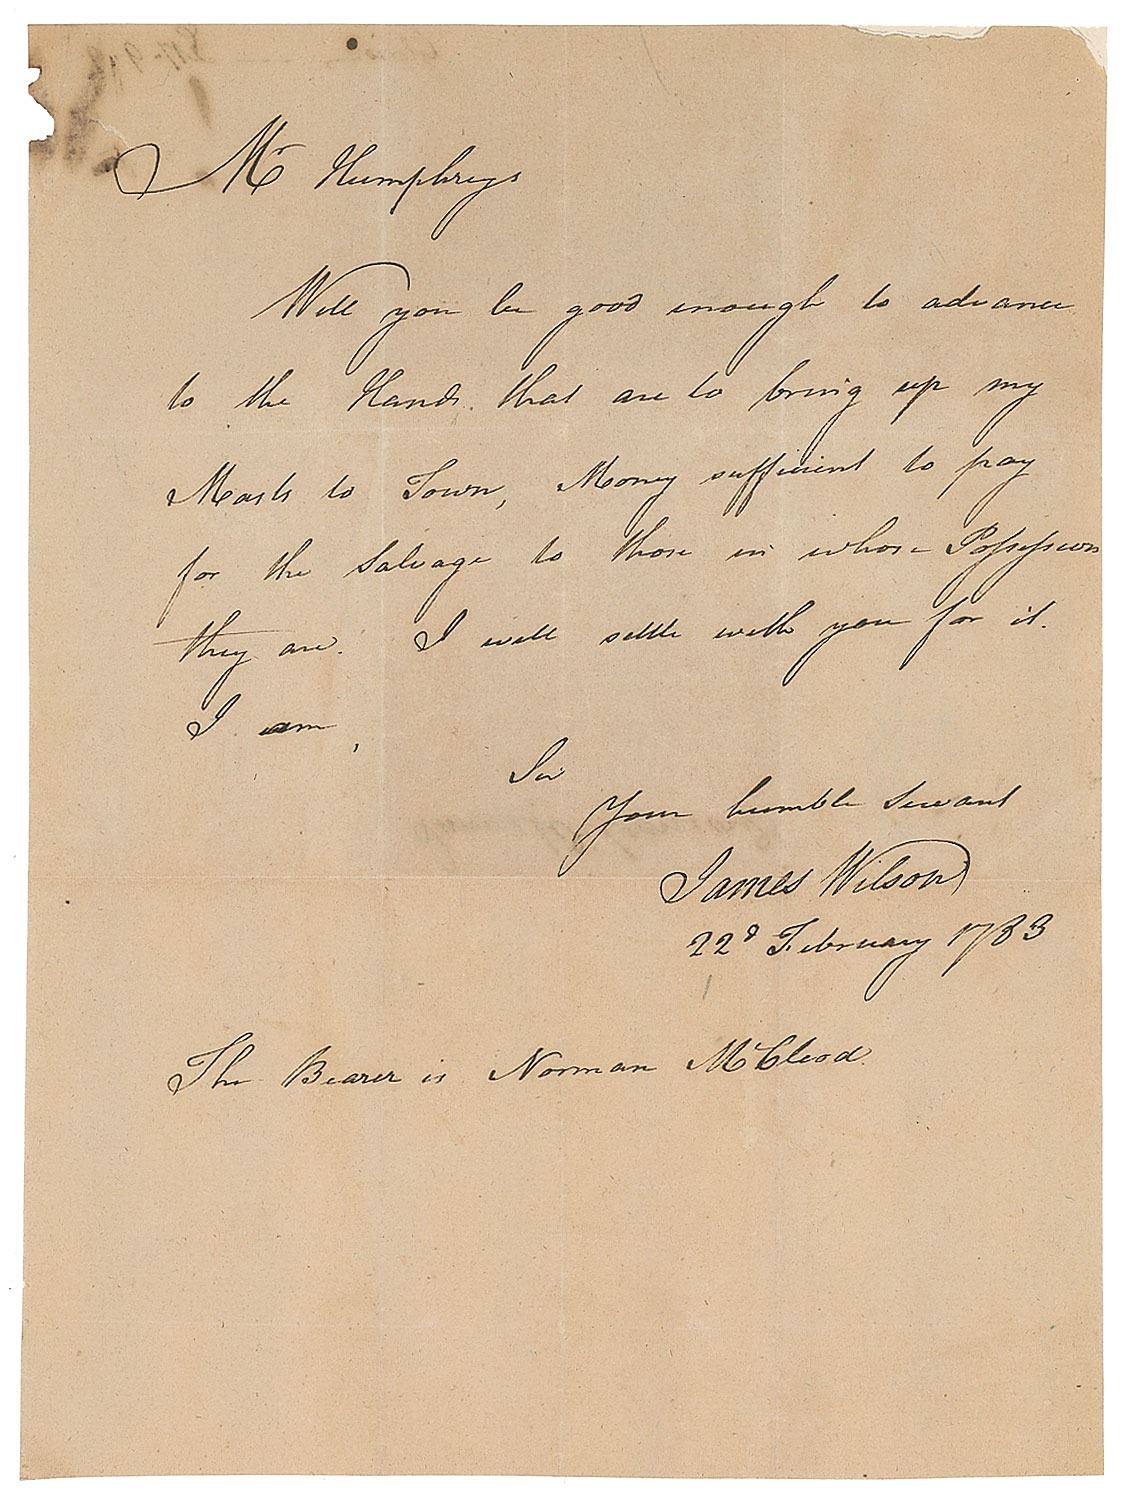 Mr Humphreys
Will you be good enough to advance
to the Hands that are to bring up my
Masts to Town, Money sufficient to pay
for the Salvage to those in whose Possession
they are. I will settle with you for it.
I am,
Sir
Your humble Servant
James Wilson
22d February 1783
The Bearer is Norman McCleod.